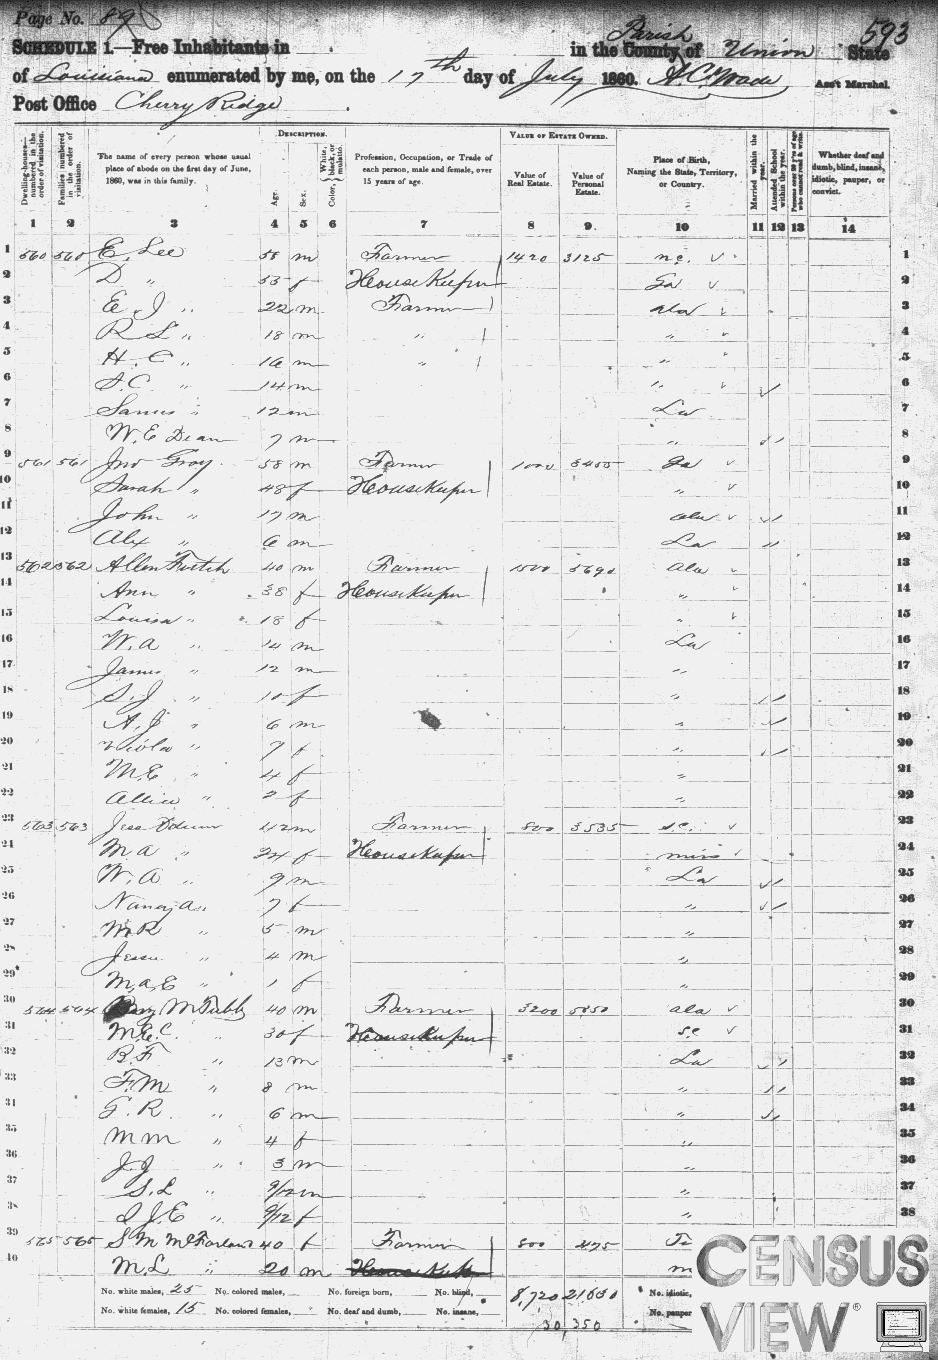 Page No. 89
593
SCHEDULE 1.—Free Inhabitants in in the County Parish of Union State
of Louisiana enumerated by me, on the 17th day of July 1860. A. C. Wade Ass't Marshal.
Post Office Cherry Ridge
DESCRIPTION. VALUE OF ESTATE OWNED.
Dwelling-houses—numbered in the order of visitation. Families numbered in the order of visitation. The name of every person whose usual place of abode on the first day of June, 1860, was in this family. Age. Sex. Color, White, black, or mulatto. Profession, Occupation, or Trade of each person, male and female, over 15 years of age. Value of Real Estate. Value of Personal Estate. Place of Birth, Naming the State, Territory, or Country. Married within the year. Attended School within the year. Persons over 20 y'rs of age who cannot read & write. Whether deaf and dumb, blind, insane, idiotic, pauper, or convict.
1 2 3 4 5 6 7 8 9 10 11 12 13 14
1 560 560 E. Lee 55 m Farmer 1420 3125 N.C. 1
2 D " 53 f HouseKeeper Ga 2
3 E J " 22 m Farmer Ala 3
4 R L " 18 m " " 4
5 H C " 16 m " " 5
6 S.C. " 14 m " 6
7 " 12 m La 7
8 W. E Dean 7 m " 8
9 561 561 Jno Gray 58 m Farmer 1000 3455 Ga 9
10 Sarah " 48 f HouseKeeper " 10
11 John " 17 m Ala 11
12 Alex " 6 m La 12
13 562 562 Allen Futch 40 m Farmer 1500 5690 Ala 13
14 Ann " 38 f HouseKeeper " 14
15 Louisa " 18 f " 15
16 W. A " 14 m La 16
17 James " 12 m " 17
18 S. J " 10 f " 18
19 A. J " 6 m " 19
20 Viola " 7 f " 20
21 M. E " 4 f " 21
22 Allice " 2 f " 22
23 563 563 Jesse Odum 42 m Farmer 800 3535 S.C. 23
24 M A " 24 f HouseKeeper Miss 24
25 W. A " 9 m La 25
26 Nancy A " 7 f " 26
27 M. R " 5 m " 27
28 Jesse " 4 m " 28
29 M. A. E " 1 f " 29
30 564 564 M Tubb 40 m Farmer 3200 5850 Ala 30
31 M. E. C. " 30 f HouseKeeper S.C 31
32 B. F " 13 m La 32
33 F. M " 8 m " 33
34 G. R. " 6 m " 34
35 M M " 4 f " 35
36 J. J " 3 m " 36
37 S. L " 9/12 m " 37
38 J. E " 9/12 f " 38
39 565 565 S M McFarland 40 f Farmer 800 475
40 M. L " 20 m HouseKeeper
No. white males, 25 No. colored males, No. foreign born, No. blind, 8,720 No. idiotic,
No. white females, 15 No. colored females, No. deaf and dumb, No. insane, No. pauper
30,350
CENSUS
VIEW®